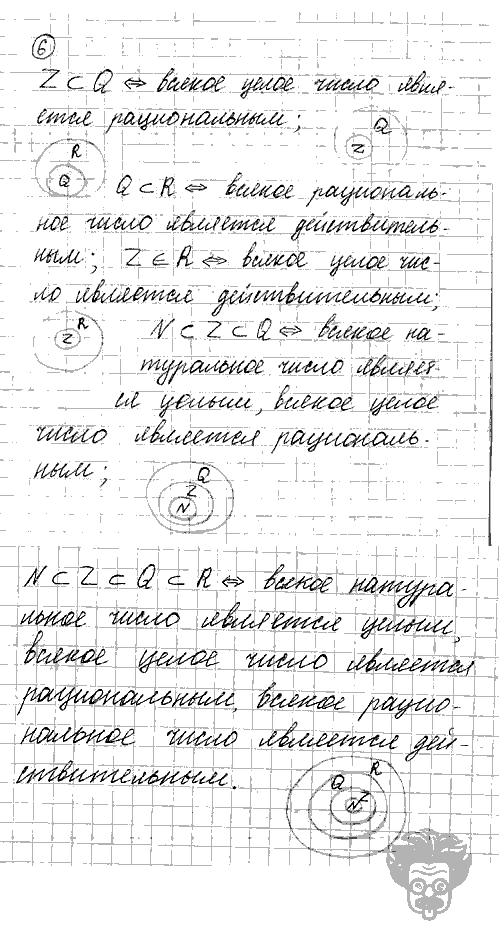 6
Z ⊂ Q ⇔ всякое целое число явля-
ется рациональным;
Q
Z
R
Q
Q ⊂ R ⇔ всякое рациональ-
ное число является действитель-
ным; Z ⊂ R ⇔ всякое целое чис-
ло является действительным;
R
Z
N ⊂ Z ⊂ Q ⇔ всякое на-
туральное число являет-
ся целым, всякое целое
число является рациональ-
ным;
Q
Z
N
N ⊂ Z ⊂ Q ⊂ R ⇔ всякое натура-
льное число является целым,
всякое целое число является
рациональным, всякое рацио-
нальное число является дей-
ствительным.
R
Q
Z
N